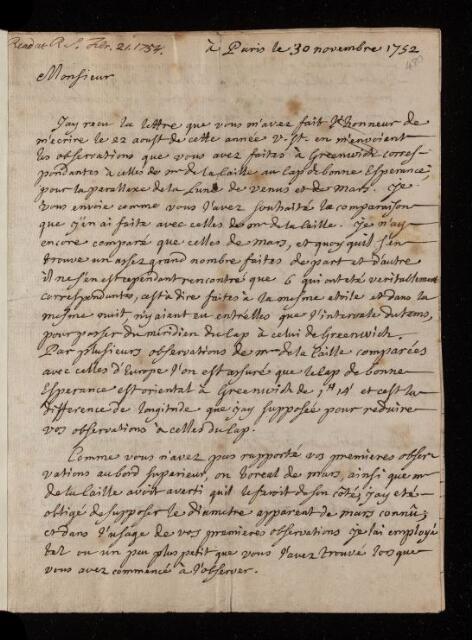 Read at R.S. Febr. 21. 1754.
à Paris le 30 novembre 1752
Monsieur
J'ay reçu la lettre que vous m'avez fait l'honneur de
m'ecrire le 22 aoust de cette année v. st. en m'envoient
les observations que vous avez faites à Greenwich corres-
pondantes à celles de mr de la Caille au Cap de bonne Esperance,
pour la parallaxe de la Lune de venus et de Mars. Je
vous envoie comme vous l'avez souhaité la comparaison
que j'en ai faite avec celles de mr de la Caille. Je n'ay
encore comparé que celles de mars, et quoy qu'il s'en
trouve un assez grand nombre faites de part et d'autre
il ne s'en est cependant rencontré que 6 qui ont eté veritablement
correspondantes, c'est à dire faites à la mesme etoile et dans la
mesme nuit, n'y aiant eu entr'elles que l'intervale du tems,
pour passer du meridien du Cap à celui de Greenwich.
Par plusieurs observations de mr de la Caille comparées
avec celles d'Europe l'on est assuré que le Cap de bonne
Esperance est oriental à Greenwich de 1h 14' et c'est la
difference de longitude que j'ay supposée pour reduire
vos observations à celles du Cap.
Comme vous n'avez pas rapporté vos premieres obser
vations au bord superieur, ou boreal de mars, ainsi que mr
de la Caille avoit averti qu'il le feroit de son côté; j'ay eté
obligé de supposer le diametre apparent de mars connû;
et dans l'usage de vos premieres observations je l'ai employé
tel ou un peu plus petit que vous l'avez trouvé lorsque
vous avez commencé à l'observer.